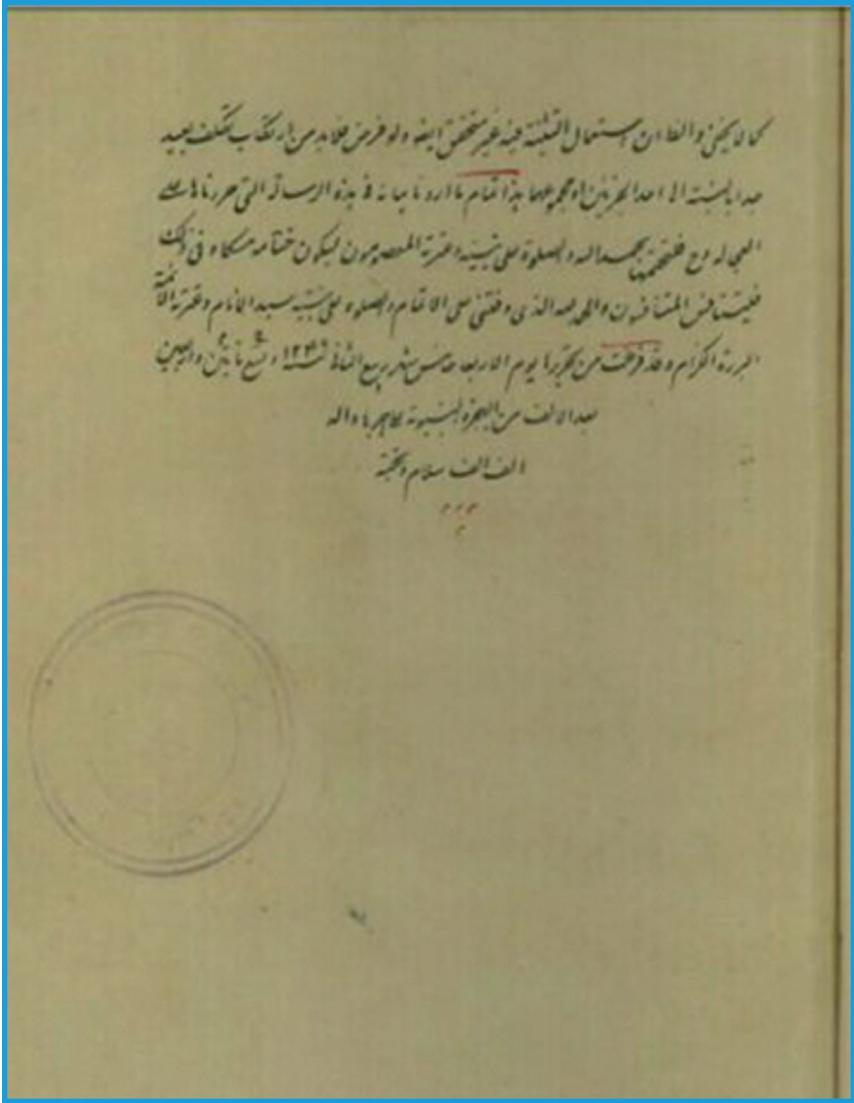 كما لا يخفى والظاهر ان استعمال التثنية فيه غير متحقق ايضا ولو فرض فلا بد من ارتكاب تكلف بعيد
جدا بالنسبة الى احد الجزئين او مجموعهما هذا تمام ما اردنا بيانه في هذه الرسالة التي حررناها على
العجاله وح فنختمها بحمد الله والصلوة على نبيه وعترته المعصومون ليكون ختامه مسكا وفي ذلك
فليتنافس المتنافسون والحمد لله الذي وفقني على الاتمام والصلوة على نبيه سيد الانام وعترته الائمة
البررة الكرام وقد فرغت من تحريرها يوم الاربعا خامس شهر ربيع الثاني سنة ١٢٤٩ تسع مأتين واربعين
بعد الالف من الهجرة النبوية على هاجرها واله
الف الف سلام وتحية